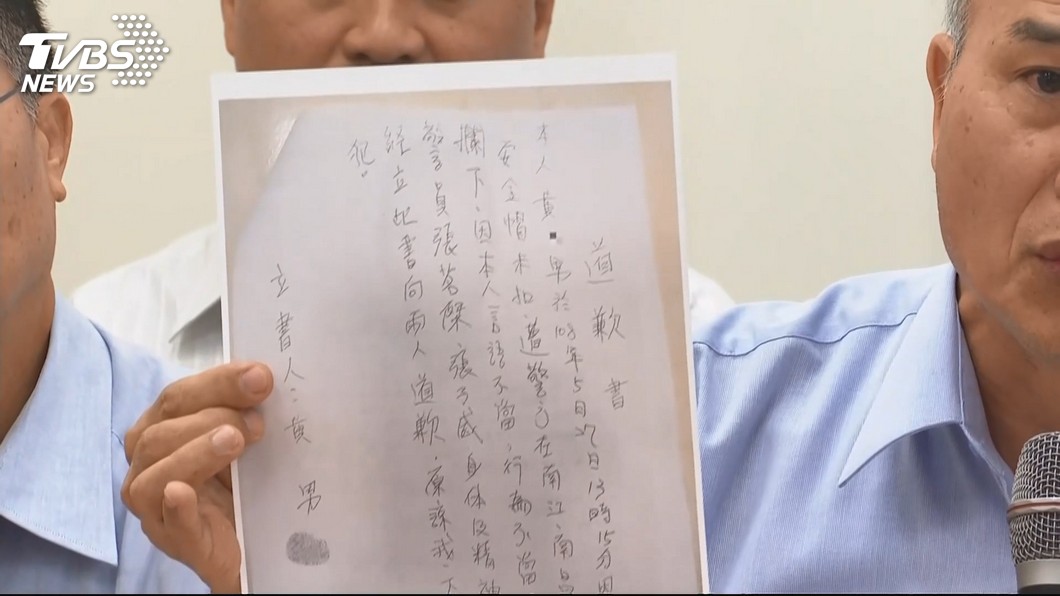 TVBS
NEWS
道歉書
本人黃 男於108年5月27日13時15分因
安全帽未扣,遭警方在南江、南昌
攔下,因本人言語不當,行為不當
警員張萬 張子威 身体及精神
經立此書向兩人道歉.原諒我.下
犯。
立書人:黃 男